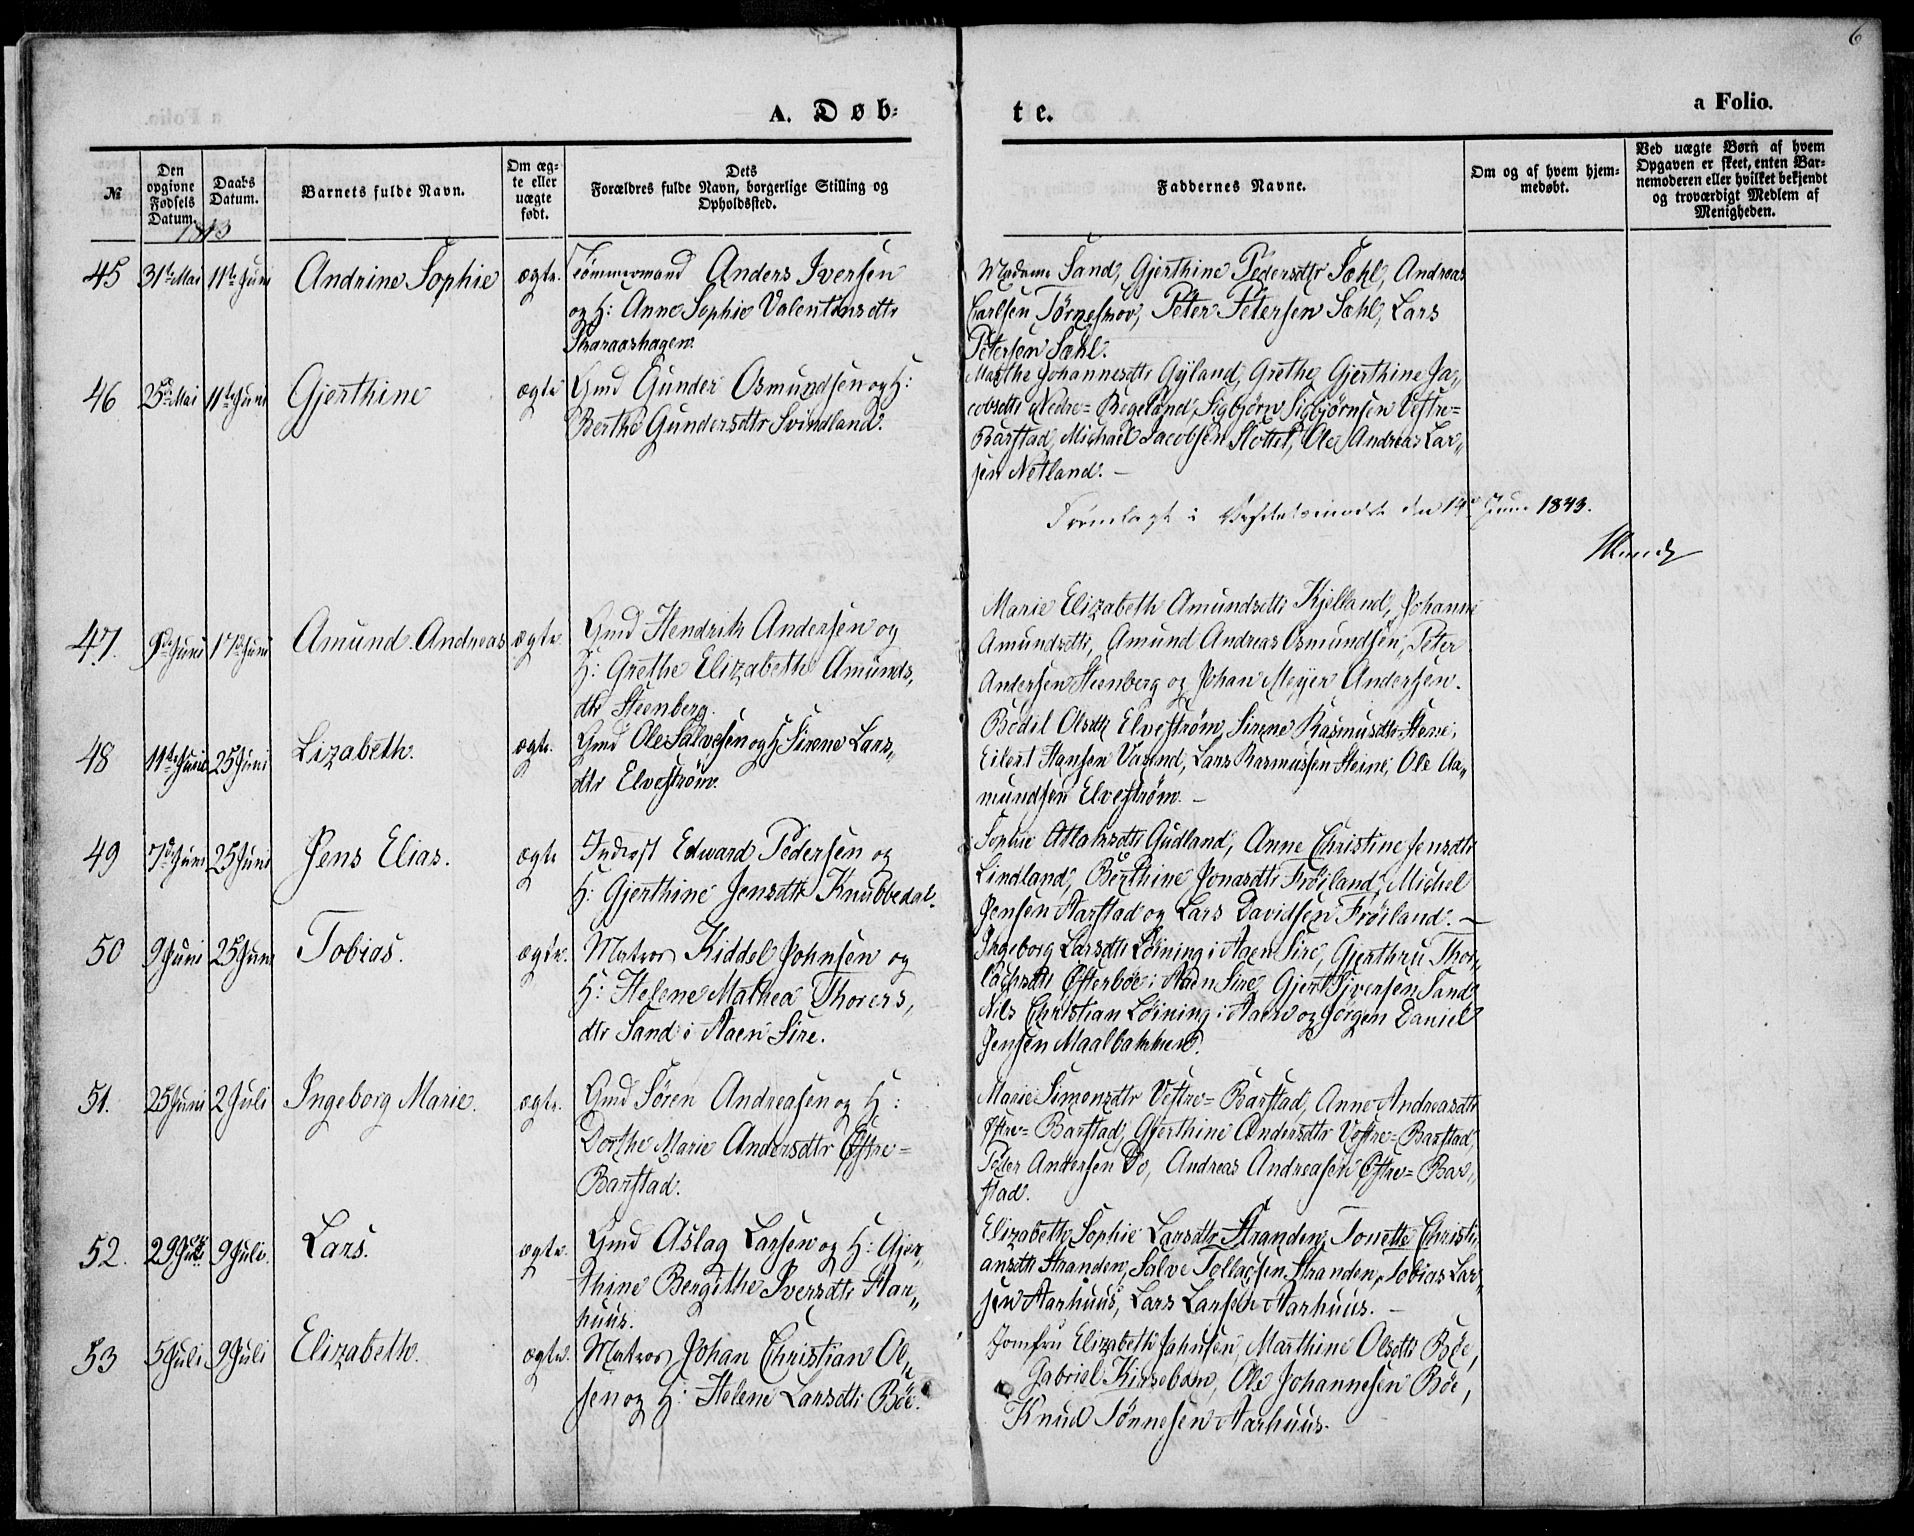 6
A. Døb-
te.
a Folio.
№
Den opgivne Fødsels Datum.
Daabs Datum.
Barnets fulde Navn.
Om ægte eller uægte født.
Dets Forældres fulde Navn, borgerlige Stilling og Opholdssted.
Faddernes Navne.
Om og af hvem hjemmedøbt.
Ved uægte Børn af hvem Opgaven er skeet, enten Barnemoderen eller hvilket bekjendt og troværdigt Medlem af Menigheden.
1843
45 31te Mai 11te Juni Andrine Sophie ægte.
Tømmermand Anders Iversen
og H: Anne Sophie Valentinsdtr
Madame Sand, Gjerthine Pedersdtr Sæhl, Andreas
Carlsen Tørneskov, Peter Petersen Sæhl, Lars
Petersen Sæhl.
46 25de Mai 11te Juni Gjerthine ægte
Gmd Gunder Osmundsen og H:
Berthe Gundersdtr Svindland.
Marthe Johannesdtr Gyland, Grethe Gjerthine Ja„
cobsdtr Nedre-Regeland, Sigbjørn Sigbjørnsen Vestre=
Barstad, Michael Jacobsen Slottet, Ole Andreas Lar„
sen Netland. —
Fremlagt i den 14de Juni 1843.
47. 9de Juni 17de Juni Amund Andreas ægte
Gmd Hendrik Andersen og
H: Grethe Elizabeth Amunds„
dtr Steenberg.
Marie Elizabeth Amundsdtr Kjelland, Johanne
Amundsdtr, Amund Andreas Osmundsen, Peter
Andersen Steenberg og Johan Meyer Andersen.
48 11te Juni 25 Juni Lizabeth. ægte.
Gmd Ole Salvesen og H Sirene Lars„
dtr Elvestrøm.
Bodel Olsdtr Elvestrøm, Sirene Rasmusdtr Stene,
Eilert Hansen Varind, Lars Rasmussen Steine, Ole Aa„
mundsen Elvestrøm. —
49 7de Juni 25 Juni Jens Elias. ægte
Inderst Edward Pedersen og
H: Gjerthine Jensdtr Knubbedal.
Sophie Atlaksdtr Gudland, Anne Christine Jensdtr
Lindland, Berthine Jonasdtr Frøiland, Michel
Jensen Aarstad og Lars Davidsen Frøiland. —
50 9 Juni 25 Juni Tobias. ægte.
Matros Kiddel Johnsen og
H: Helene Mathea Thorers,
dtr Sand i Aaen Sire.
Ingeborg Larsdtr Løining i Aaen Sire, Gjerthru Thor„
lachsdtr Østerbøe i Aaen Sire, Gjert Siversen Sand,
Nils Christian Løining i Aaen og Jørgen Daniel
Jensen Maalbakken.
51. 25 Juni 2 Juli Ingeborg Marie. ægte.
Gmd Søren Andreasen og H:
Dorthe Marie Andersdtr Østre=
Barstad.
Marie Simonsdtr Vestre=Barstad, Anne Andreasdtr
Østre=Barstad, Gjerthine Andersdtr Vestre=Barstad,
Peder Andersen Do, Andreas Andreasen Østre=Bar„
stad.
52. 29 9 Juli. Lars. ægte.
Gmd Aslag Larsen og H: Gjer„
thine Bergithe Iversdtr Aar„
huus.
Elizabeth Sophie Larsdtr Stranden, Tonette Christi„
ansdtr Stranden, Salve Tollagsen Stranden, Tobias Lar„
sen Aarhuus, Lars Larsen Aarhuus. —
53 5 Juli 9 Juli Elizabeth. ægte.
Matros Johan Christian Ol„
sen og H: Helene Larsdtr Bøe.
Jomfru Elizabeth Jahnsen, Marthine Olsdtr Bøe,
Gabriel Kirsebom, Ole Johannesen Bøe,
Knud Tønnesen Aarhuus.